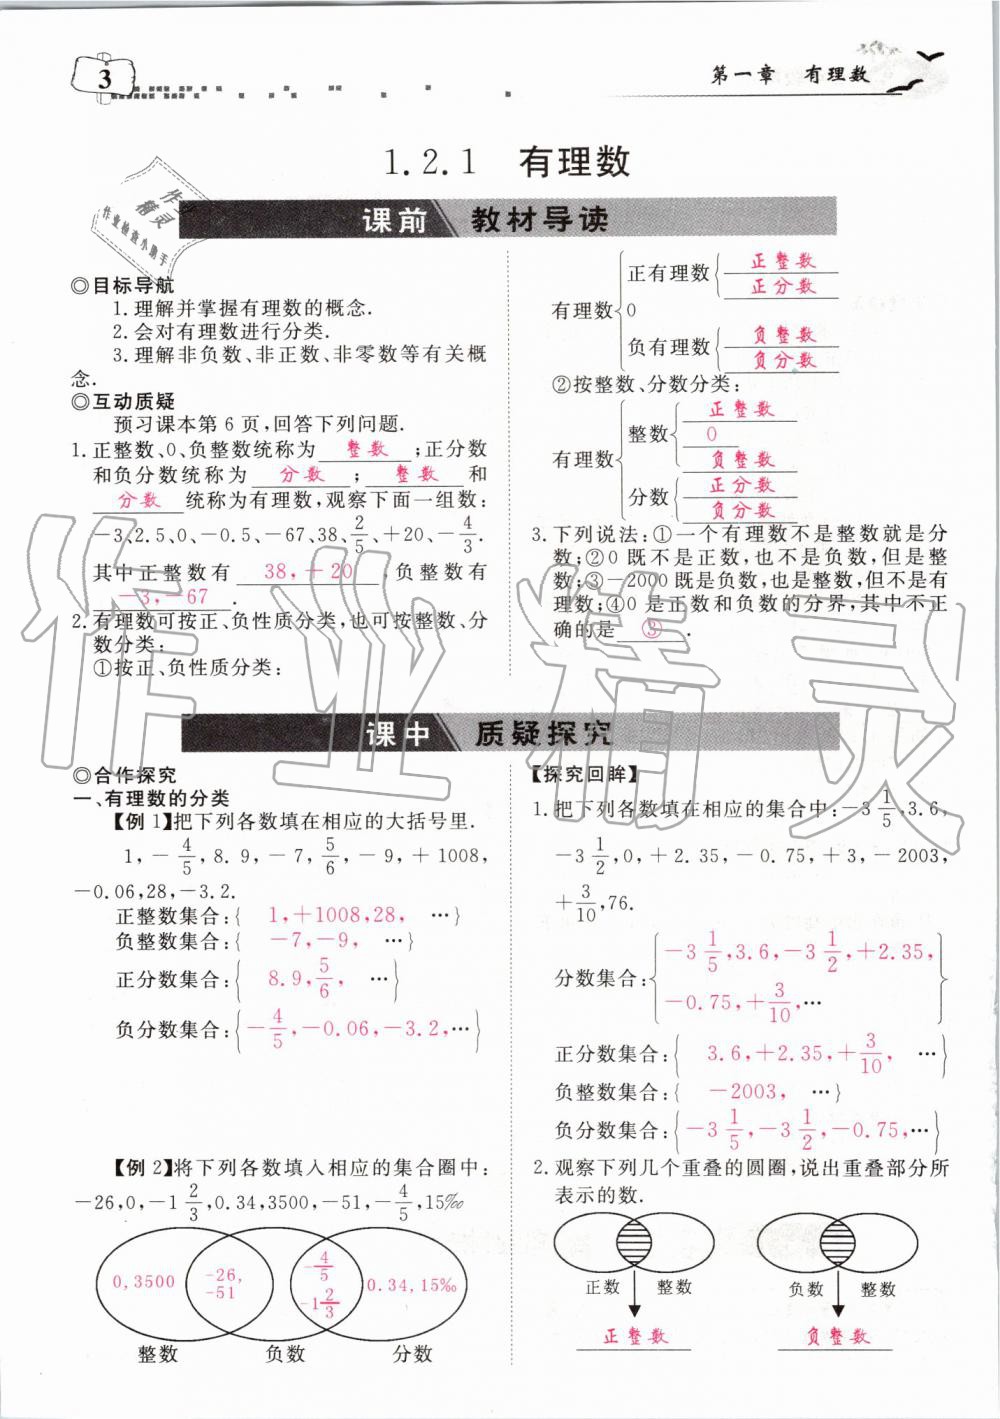 3
第一章 有理数
1.2.1 有理数
作业精灵
作业检查小助手
课前 教材导读
◎目标导航
1.理解并掌握有理数的概念.
2.会对有理数进行分类.
3.理解非负数、非正数、非零数等有关概
念.
◎互动质疑
预习课本第6页,回答下列问题.
1.正整数、0、负整数统称为 整数 ;正分数
和负分数统称为 分数 ; 整数 和
分数 统称为有理数,观察下面一组数:
-3、2.5、0、-0.5、-67、38、2/5、+20、-4/3.
其中正整数有 38,+20 ,负整数有
-3,-67 .
2.有理数可按正、负性质分类,也可按整数、分
数分类:
①按正、负性质分类:
有理数{正有理数{正整数
正分数
0
负有理数{负整数
负分数
②按整数、分数分类:
有理数{整数{正整数
0
负整数
分数{正分数
负分数
3.下列说法:①一个有理数不是整数就是分
数;②0既不是正数,也不是负数,但是整
数;③-2000既是负数,也是整数,但不是有
理数;④0是正数和负数的分界,其中不正
确的是 ③ .
课中 质疑探究
◎合作探究
一、有理数的分类
【例1】把下列各数填在相应的大括号里.
1,-4/5,8.9,-7,5/6,-9,+1008,
-0.06,28,-3.2.
正整数集合:{ 1,+1008,28, …}
负整数集合:{ -7,-9, …}
正分数集合:{ 8.9,5/6, …}
负分数集合:{-4/5,-0.06,-3.2,…}
【例2】将下列各数填入相应的集合圈中:
-26,0,-1 2/3,0.34,3500,-51,-4/5,15‰
0,3500
-26,
-51
-4/5
-1 2/3
0.34,15‰
整数 负数 分数
【探究回眸】
1.把下列各数填在相应的集合中:-3 1/5,3.6,
-3 1/2,0,+2.35,-0.75,+3,-2003,
+3/10,76.
分数集合:{-3 1/5,3.6,-3 1/2,+2.35,
-0.75,+3/10,…}
正分数集合:{ 3.6,+2.35,+3/10, …}
负整数集合:{ -2003, …}
负分数集合:{-3 1/5,-3 1/2,-0.75,…}
2.观察下列几个重叠的圆圈,说出重叠部分所
表示的数.
正数 整数 负数 整数
正整数 负整数
作业精灵